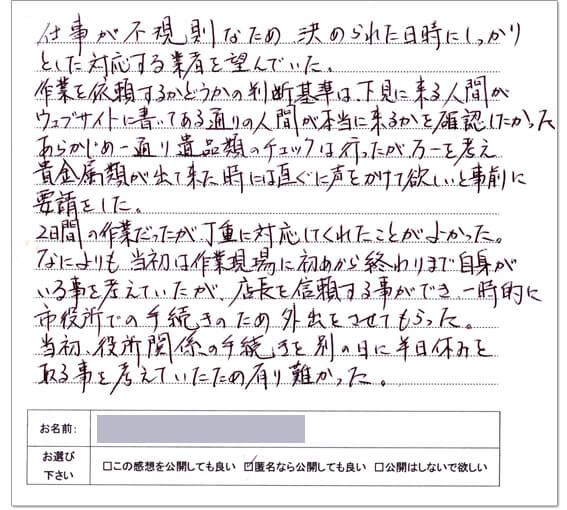 仕事が不規則なため 決められた日時にしっかり
とした対応する業者を望んでいた。
作業を依頼するかどうかの判断基準は、下見に来る人間が
ウェブサイトに書いてある通りの人間が本当に来るかを確認したかった
あらかじめ一通り遺品類のチェックは行ったが万一を考え
貴金属類が出て来た時には直ぐに声をかけて欲しいと事前に
要請をした。
2日間の作業だったが丁重に対応してくれたことがよかった。
なによりも当初は作業現場に初めから終わりまで自身が
いる事を考えていたが、店長を信頼する事ができ、一時的に
市役所での手続きのため外出をさせてもらった。
当初、役所関係の手続きを別の日に半日休みを
取る事を考えていたため有り難かった。
お名前:
お選び
下さい
□この感想を公開しても良い ☑匿名なら公開しても良い □公開はしないで欲しい